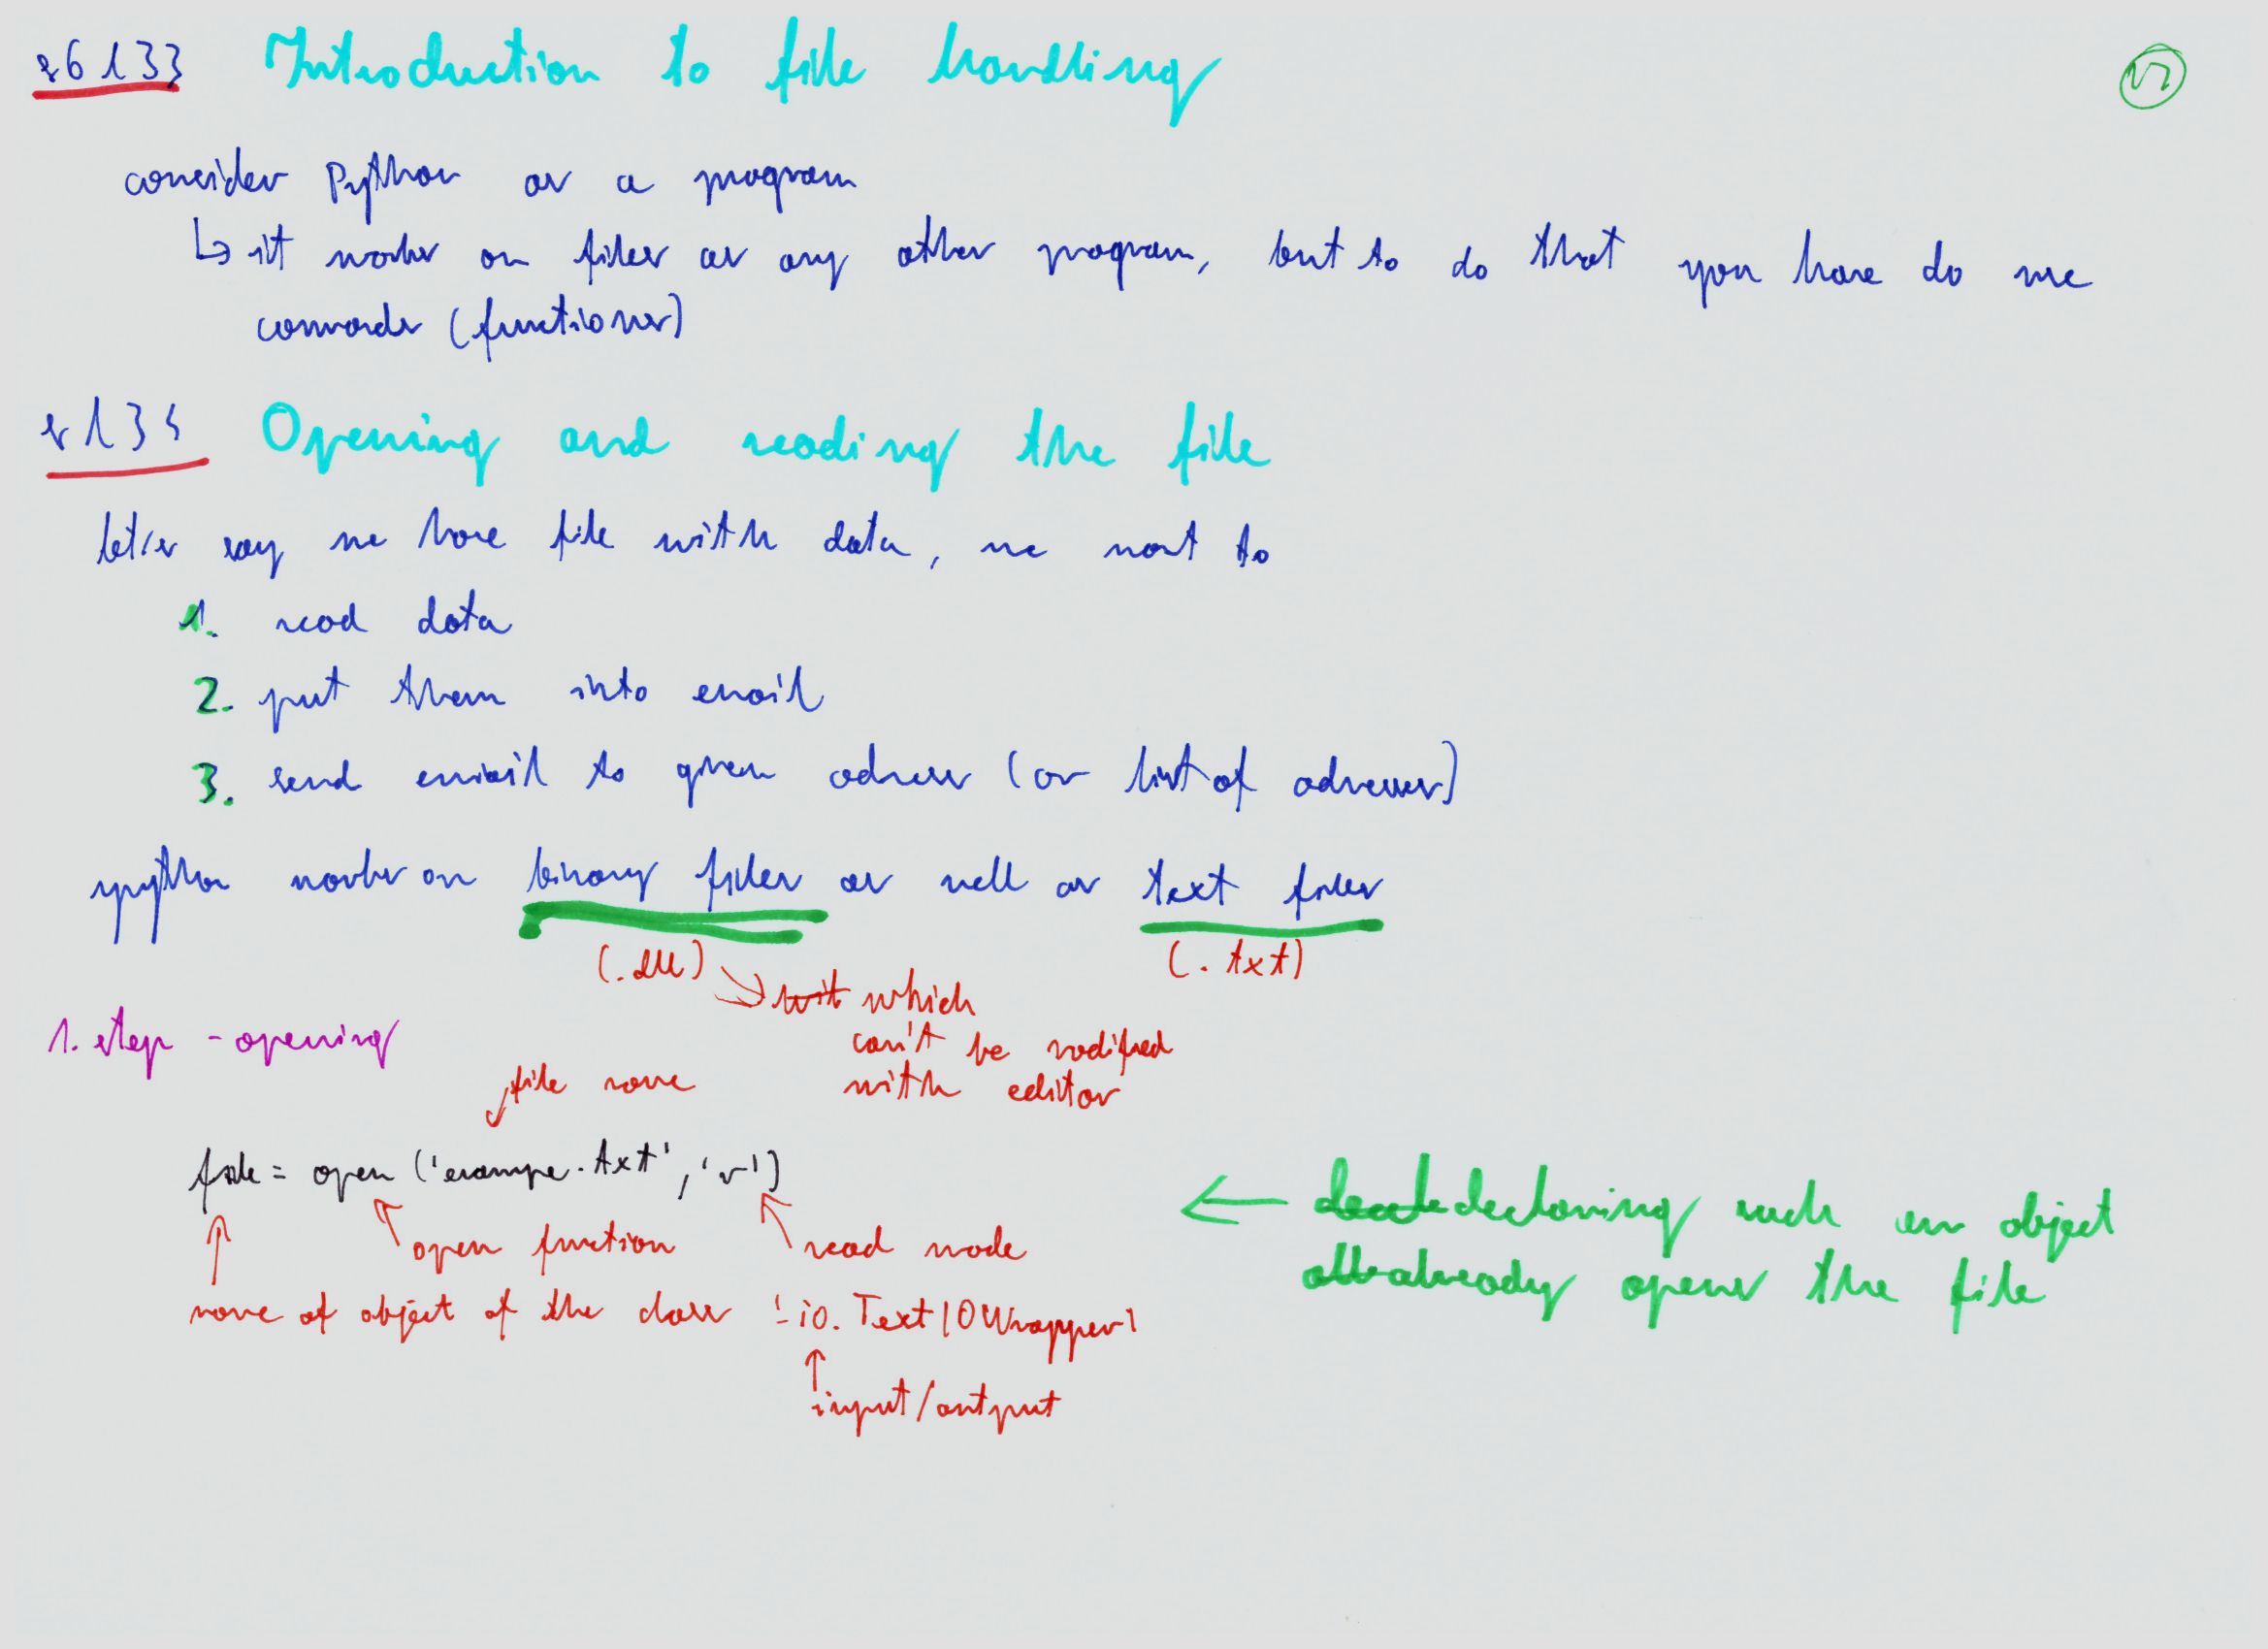 s6 133 Introduction to file handling
consider Python as a program
↳ it works on files as any other program, but to do that you have do use
comands (functions)
s 134 Opening and reading the file
let's say we have file with data, we want to
1. read data
2. put them into email
3. send email to given adress (or list of adresses)
python works on binary files as well as text files
(.dll) (.txt)
which
can't be modified
with editor
1. step - opening
file name
file = open ('exampe.txt', 'r')
open function read mode
name of object of the class '_io.TextIOWrapper'
input/output
← declaring such an object
already opens the file